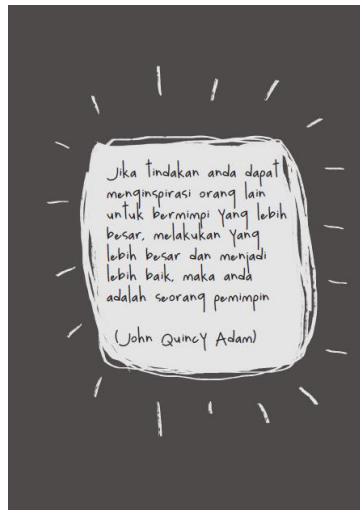 Jika tindakan anda dapat
menginspirasi orang lain
untuk bermimpi yang lebih
besar, melakukan yang
lebih besar dan menjadi
lebih baik, maka anda
adalah seorang pemimpin
(John Quincy Adam)